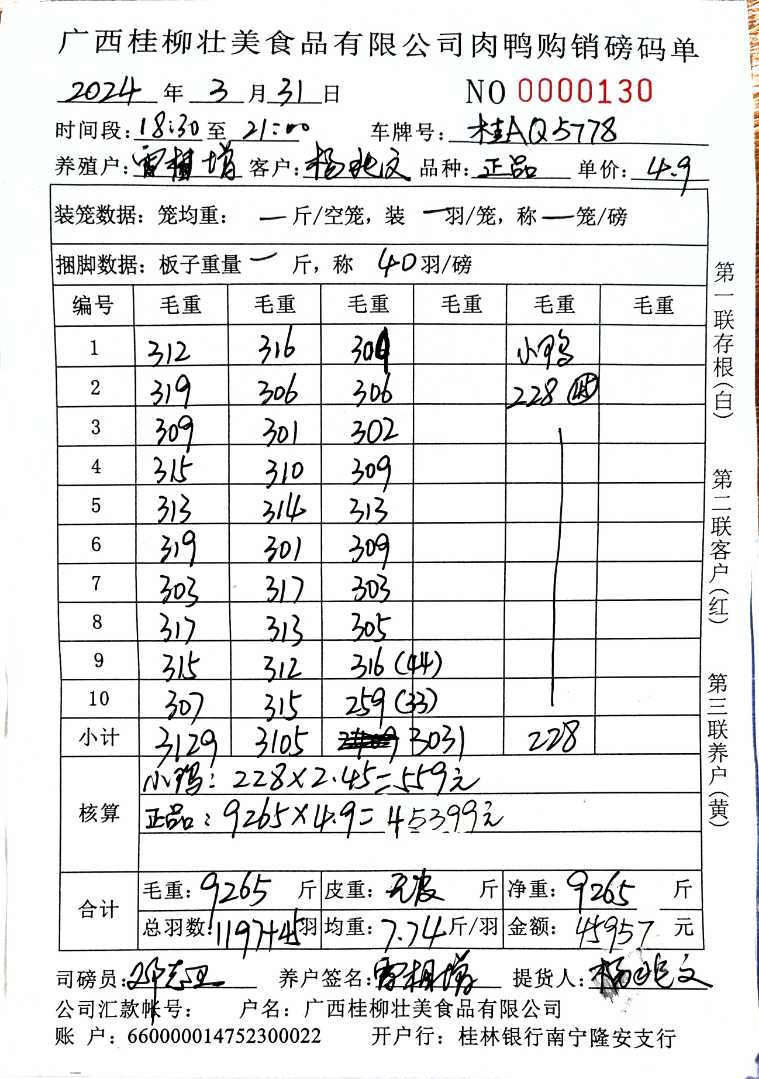 广西桂柳壮美食品有限公司肉鸭购销磅码单
2024 年 3 月 31 日 NO 0000130
时间段: 18:30 至 21:00 车牌号: 桂AQ5778
养殖户: 雷相增 客户: 杨兆文 品种: 正品 单价: 4.9
装笼数据: 笼均重: 一 斤/空笼, 装 一 羽/笼, 称 一 笼/磅
捆脚数据: 板子重量 一 斤, 称 40 羽/磅
编号 毛重 毛重 毛重 毛重 毛重 毛重
1 312 316 301 小鸭
2 319 306 306 228 (45)
3 309 301 302
4 315 310 309
5 313 314 313
6 319 301 309
7 303 317 303
8 317 313 305
9 315 312 316 (44)
10 307 315 259 (33)
小计 3129 3105 3031 228
核算 小鸭: 228×2.45=559元
正品: 9265×4.9=45399元
合计 毛重: 9265 斤 皮重: 无皮 斤 净重: 9265 斤
总羽数: 1197+45 羽 均重: 7.74 斤/羽 金额: 45957 元
司磅员: 邓志卫 养户签名: 雷相增 提货人: 杨兆文
公司汇款帐号: 户名: 广西桂柳壮美食品有限公司
账 户: 660000014752300022 开户行: 桂林银行南宁隆安支行
第一联存根(白)
第二联客户(红)
第三联养户(黄)